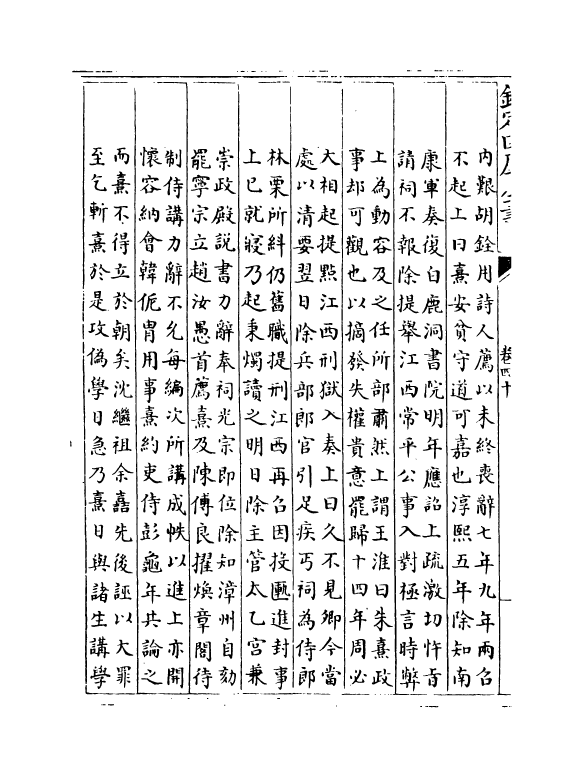 欽定四庫全書
卷四十
内艱胡銓用詩人薦以未終喪辭七年九年兩召
不起上曰熹安貧守道可嘉也淳熙五年除知南
康軍奏復白鹿洞書院明年應詔上疏激切忤旨
請祠不報除提舉江西常平公事入對極言時弊
上為動容及之任所部肅然上謂王淮曰朱熹政
事却可觀也以摘發失權貴意罷歸十四年周必
大相起提點江西刑獄入奏上曰久不見卿今當
處以清要翌日除兵部郎官引足疾丐祠為侍郎
林栗所糾仍舊職提刑江西再召因投匭進封事
上已就寢乃起秉燭讀之明日除主管太乙宮兼
崇政殿說書力辭奉祠光宗即位除知漳州自劾
罷寧宗立趙汝愚首薦熹及陳傅良擢煥章閣待
制侍講力辭不允每編次所講成帙以進上亦開
懷容納會韓侂胄用事熹約吏侍彭龜年共論之
而熹不得立於朝矣沈繼祖余嚞先後誣以大罪
至乞斬熹於是攻偽學日急乃熹日與諸生講學